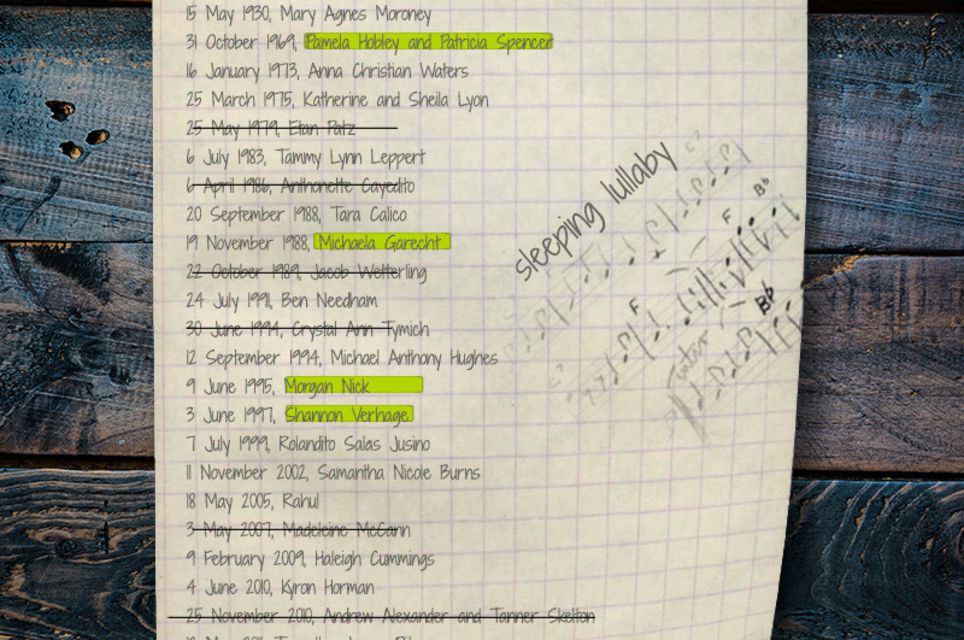 15 May 1930, Mary Agnes Moroney
31 October 1969, Pamela Hobley and Patricia Spencer
16 January 1973, Anna Christian Waters
25 March 1975, Katherine and Sheila Lyon
25 May 1979, Etan Patz
6 July 1983, Tammy Lynn Leppert
6 April 1986, Anthonette Cayedito
20 September 1988, Tara Calico
19 November 1988, Michaela Garecht
22 October 1989, Jacob Wetterling
24 July 1991, Ben Needham
30 June 1994, Crystal Ann Tymich
12 September 1994, Michael Anthony Hughes
9 June 1995, Morgan Nick
3 June 1997, Shannon Verhage
7 July 1999, Rolandito Salas Jusino
11 November 2002, Samantha Nicole Burns
18 May 2005, Rahul
3 May 2007, Madeleine McCann
9 February 2009, Haleigh Cummings
4 June 2010, Kyron Horman
25 November 2010, Andrew Alexander and Tanner Skelton
sleeping lullaby
F
Bb
F
Bb